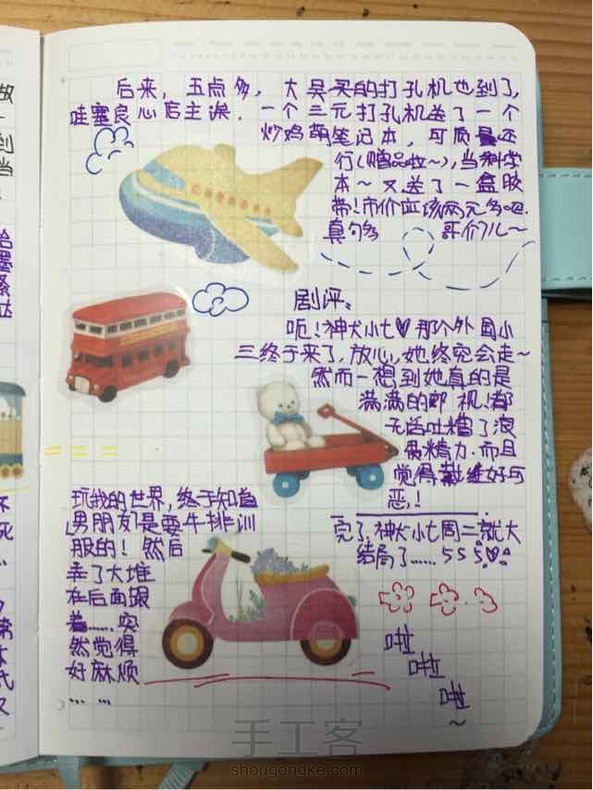 后来，五点多，大昊买的打孔机也到了，
哇塞良心店主诶．一个三元打孔机送了一个
炒鸡萌笔记本，可质量还
行(赠品啦~)，当科学
本~又送了一盒胶
带！市价应该两元多吧.
真够多 哥们儿~
剧评。
呃！神犬小七♡那个外国小
三终于来了，放心，她终究会走~
然而一想到她真的是
满满的鄙视！都
无语吐槽了浪
费精力.而且
觉得戴维好可
恶！
完了，神犬小七周二就大
结局了……555
玩我的世界，终于知道
男朋友是要牛排训
服的！然后
弄了大堆
在后面跟
着……突
然觉得
好麻烦
……
啦
啦
啦
~
手工客
shougongke.com